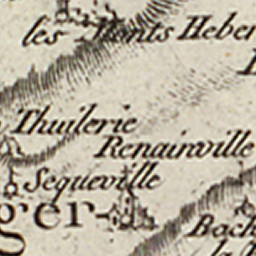 les Monts Heber
Thuilerie
Renainville
Sequeville
ger
Bach
la